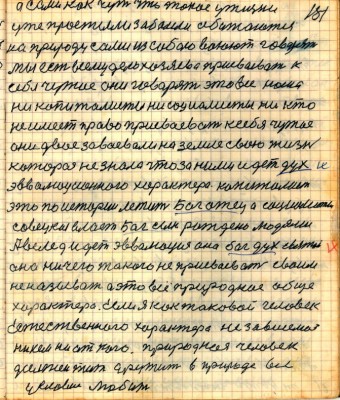 а сами как чут что такое у жизни 131
уже простыми забыли обитаются
на природу сами из собою воюют говорят
мы есть всему делу хозяева приваивать к
себя чужие они говорят это все наше
ни капиталисты ни социалисты ни кто
не имеет право приваевать к себя чужое
они двое завоевали на земле свою жизнь
которая не знала что за ними идет дух
эвволюционного характера капиталист
это по истории летит Бог отец а социалисты
советская власт Бог сын рождено людями
А вслед идет эвволюция она бог дух святы
она ничего такого не приваевать своим
не называть а это всё природное обще
характера. Если я как таковой человек
естественного характера независемай
никем ни от кого. природная человек
должен жит дружит в природе все
условие любит